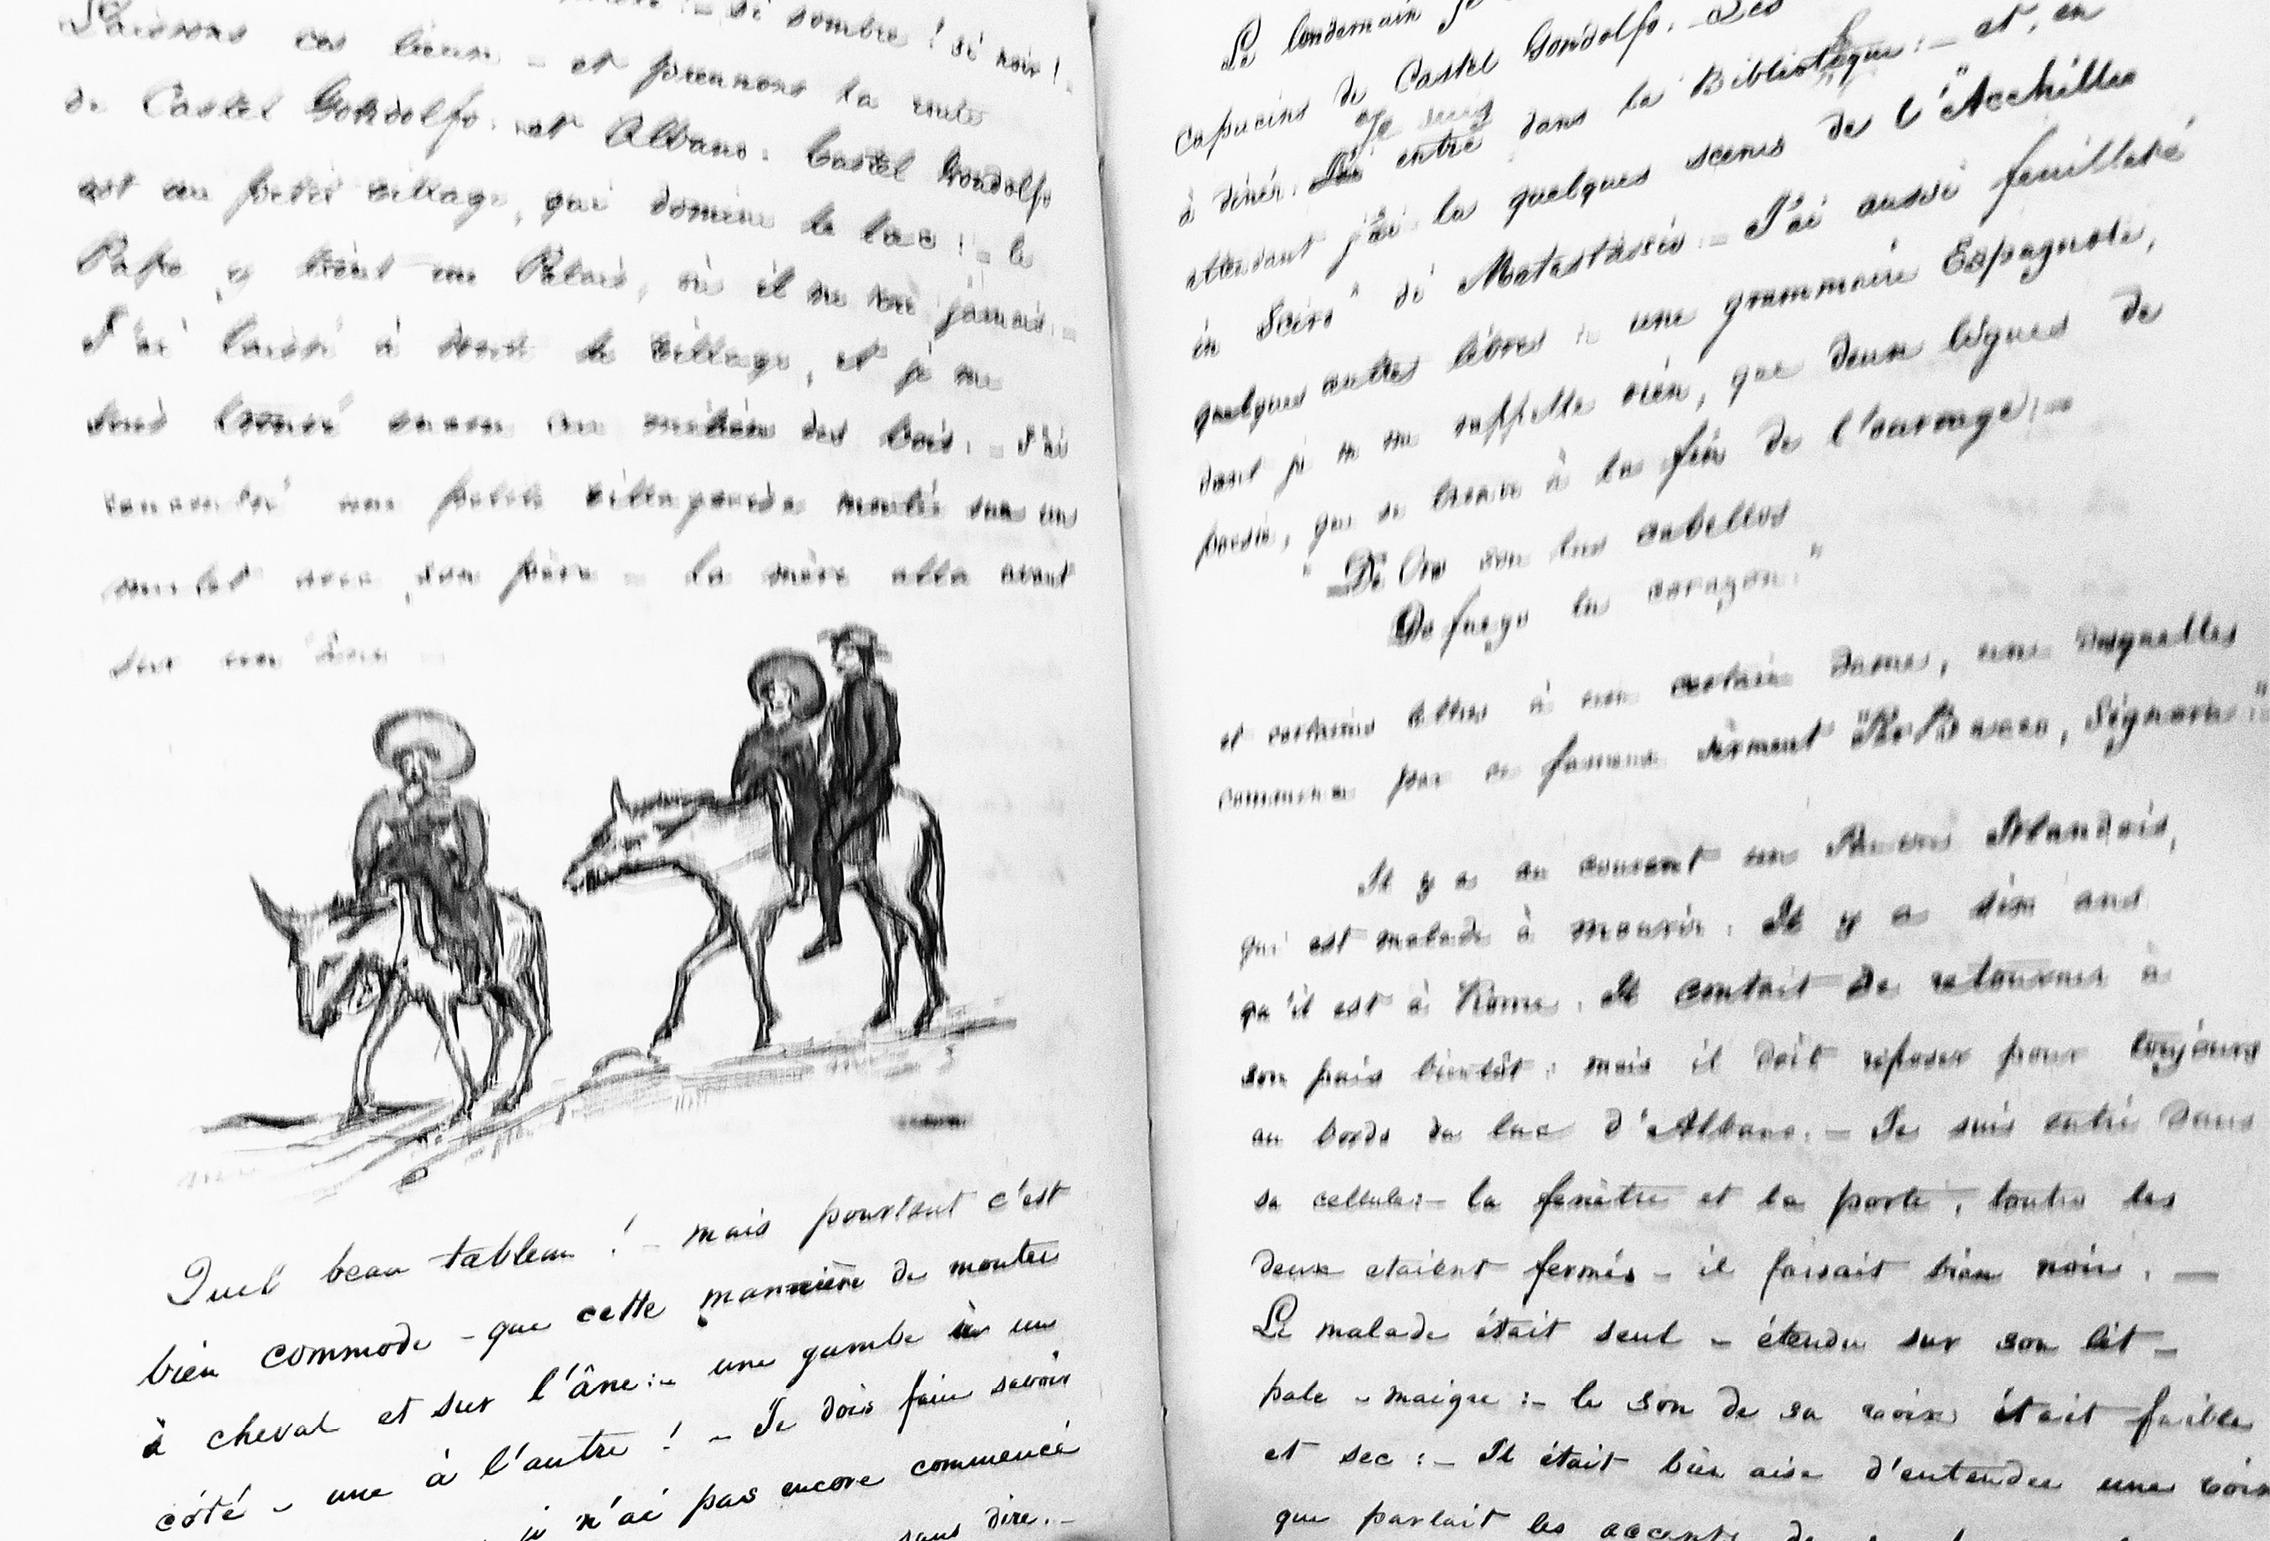 si sombre ! si noir ! -
Laissons ces lieux - et prennons la route
de Castel Gondolfo. et Albano. Castel Gondolfo
est un petit village, qui domine le lac : - le
Pape y tient un Palais, où il ne va jamais. -
J'ai laissé à droit le village, et je me
suis trouvé encore au milieu des bois. - J'ai
rencontré une petite villageoise montée sur un
mulet avec son père - la mère alla avant
sur un âne -
Quel beau tableau ! - mais pourtant c'est
bien commode - que cette mannière de monter
à cheval et sur l'âne : - une gambe à un
côté - une à l'autre ! - Je dois faire savoir
je n'ai pas encore commencé
sans dire. -
Le lendemain je
capucins de Castel Gondolfo. - Les
à diner. Je suis entré dans la Biblioteque : - et, en
attendant j'ai lu quelques scenes de l'"Acchille
in Sciro" di Metastasio. - J'ai aussi feuilleté
quelques autres livres : une grammaire Espagnole,
dont je ne me rappelle rien, que deux lignes de
poesie, que se trouve à la fin de l'ouvrage ; -
"De Oro son tus cabellos
De fuego tu corazon."
et certaines lettres à une certaine dame, une desquelles
commence par ce fameux serment "Per Bacco, Signora" :
Il y a au couvent un Pauvre Irlandois,
qui est malade à mourir. Il y a dix ans
qu'il est à Rome. Il contait de retourner à
son païs bientôt : mais il doit reposer pour toujours
au bords du lac d'Albano. - Je suis entré dans
sa cellule : - la fenêtre et la porte, toutes les
deux etaient fermés - il faisait bien noir. -
Le malade était seul - étendu sur son lit -
pale - maigre : - le son de sa voix était faible
et sec : - Il était bien aise d'entendre une voix
que parlait les accents de